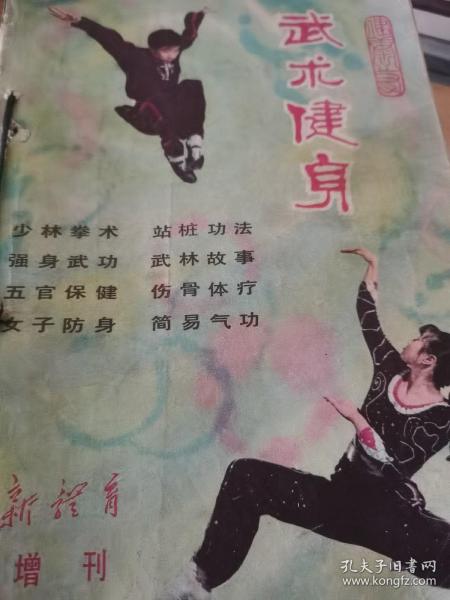 武术健身
少林拳术 站桩功法
强身武功 武林故事
五官保健 伤骨体疗
女子防身 简易气功
新體育
增刊
孔夫子旧书网
www.kongfz.com